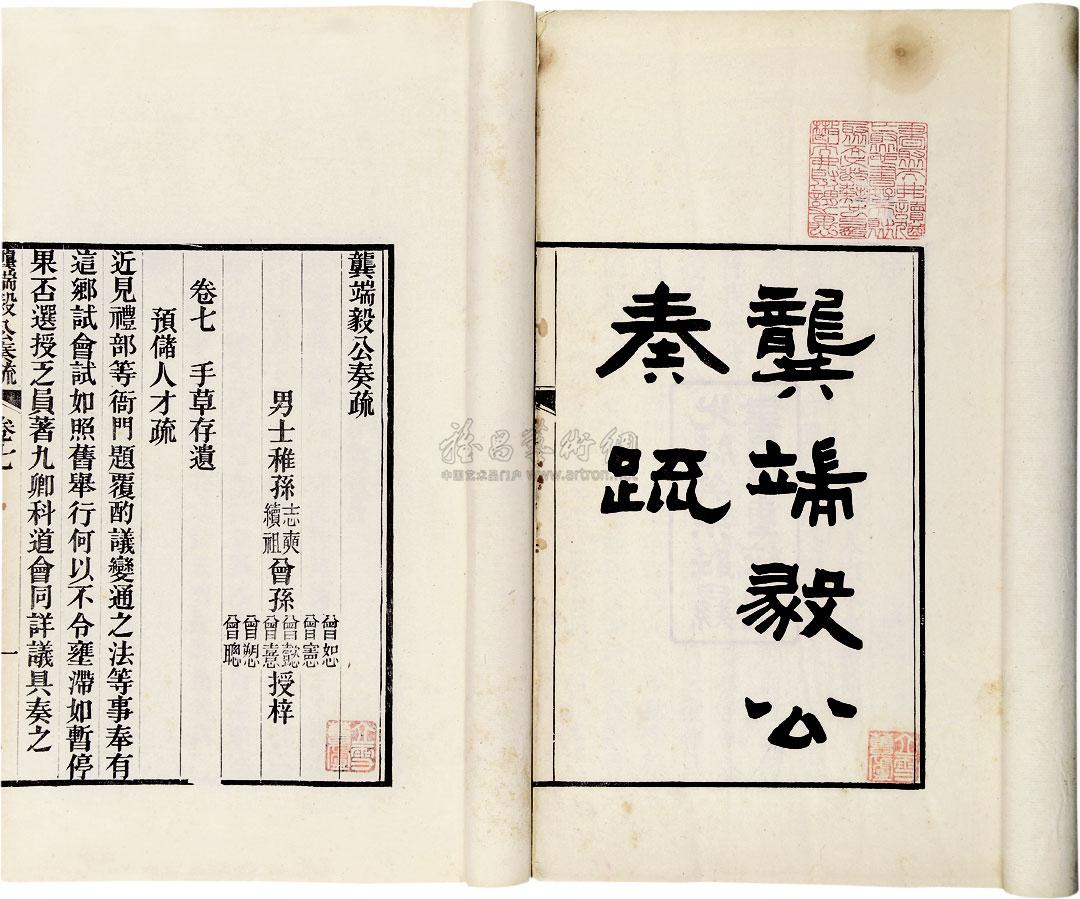 龔端毅公
奏疏
龔端毅公奏疏
男士稚孫志奭續祖曾孫曾恕曾憲曾懿曾憙曾愬曾聰授梓
卷七　手草存遺
預儲人才疏
近見禮部等衙門題覆酌議變通之法等事奉有
這鄉試會試如照舊舉行何以不令壅滯如暫停
果否選授乏員著九卿科道會同詳議具奏之
龔端毅公奏疏　卷七　一
中国艺术品门户 www.artron.net